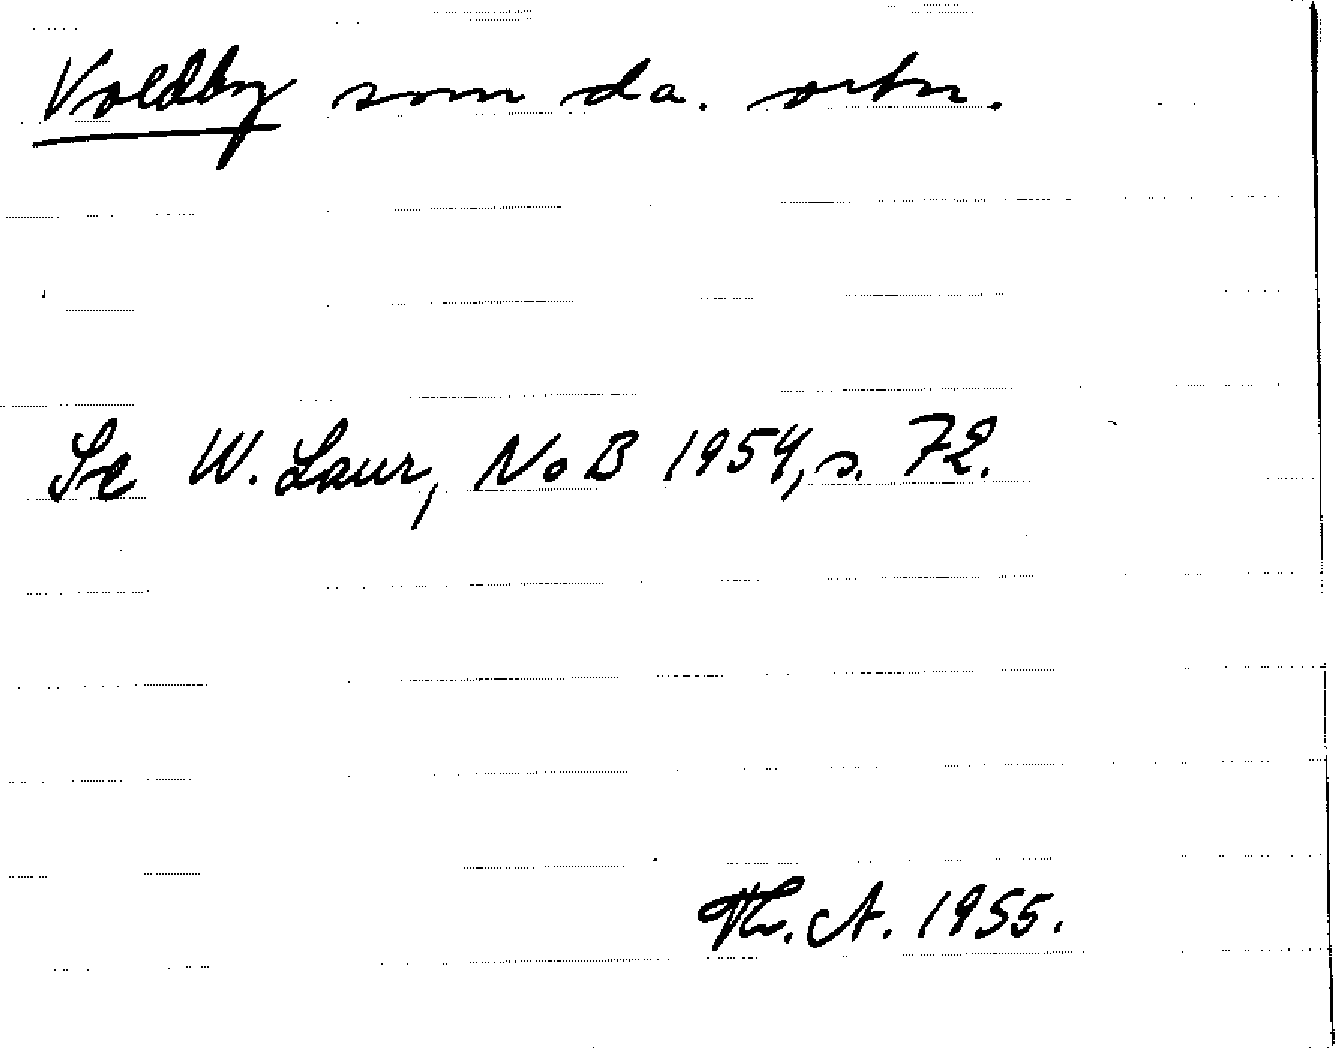 Voldby som da. ortn.
Se W. Laur, NoB 1954, s. 72.
Th. A. 1955.